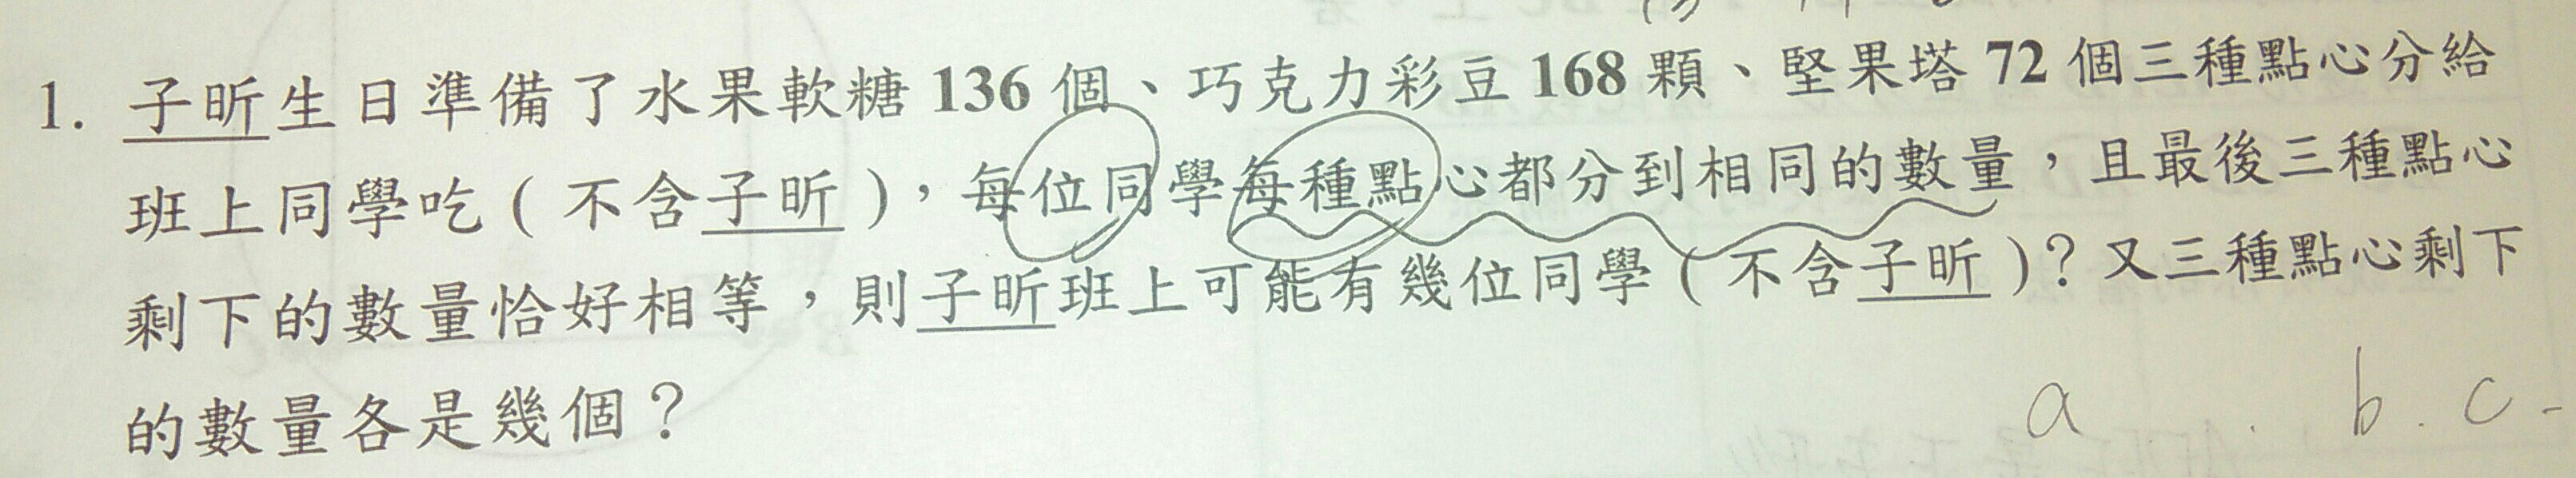 1. 子昕生日準備了水果軟糖 136 個、巧克力彩豆 168 顆、堅果塔 72 個三種點心分給
班上同學吃（不含子昕），每位同學每種點心都分到相同的數量，且最後三種點心
剩下的數量恰好相等，則子昕班上可能有幾位同學（不含子昕）？又三種點心剩下
的數量各是幾個？
a . b . c -